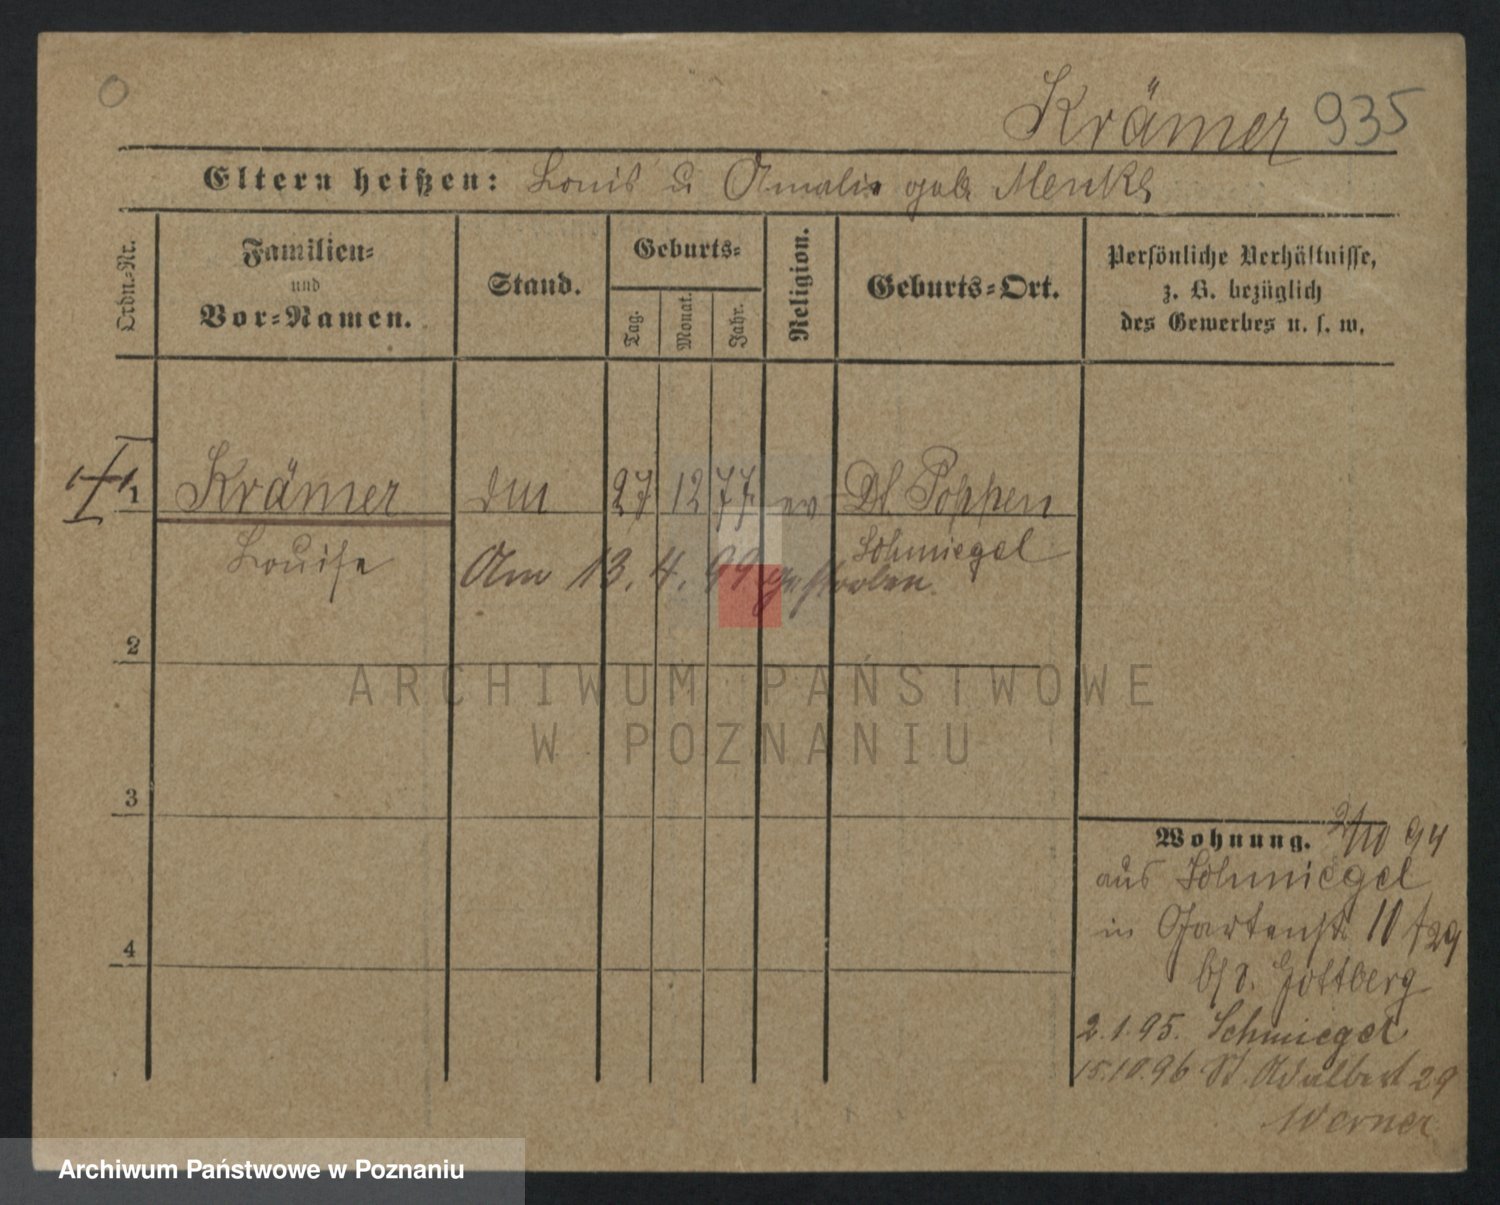 0
Krämer 935
Eltern heißen: Louis u Amalie geb Menke
Ordn.-Nr.
Familien-
und
Vor-Namen.
Stand.
Geburts-
Tag.
Monat.
Jahr.
Religion.
Geburts-Ort.
Persönliche Verhältnisse,
z. B. bezüglich
des Gewerbes u. s. w.
1 Krämer 27 12 77 ev Dt. Poppen
Louise Schmiegel
Am 13. 4. 99 gestorben.
2
3
4
Wohnung. 2/10 94
aus Schmiegel
in Gartenstr. 10 /29
b/v. Gottberg
2.1.95. Schmiegel
15.10.96 St. Adalbert 29
Werner
ARCHIWUM PAŃSTWOWE
W POZNANIU
Archiwum Państwowe w Poznaniu